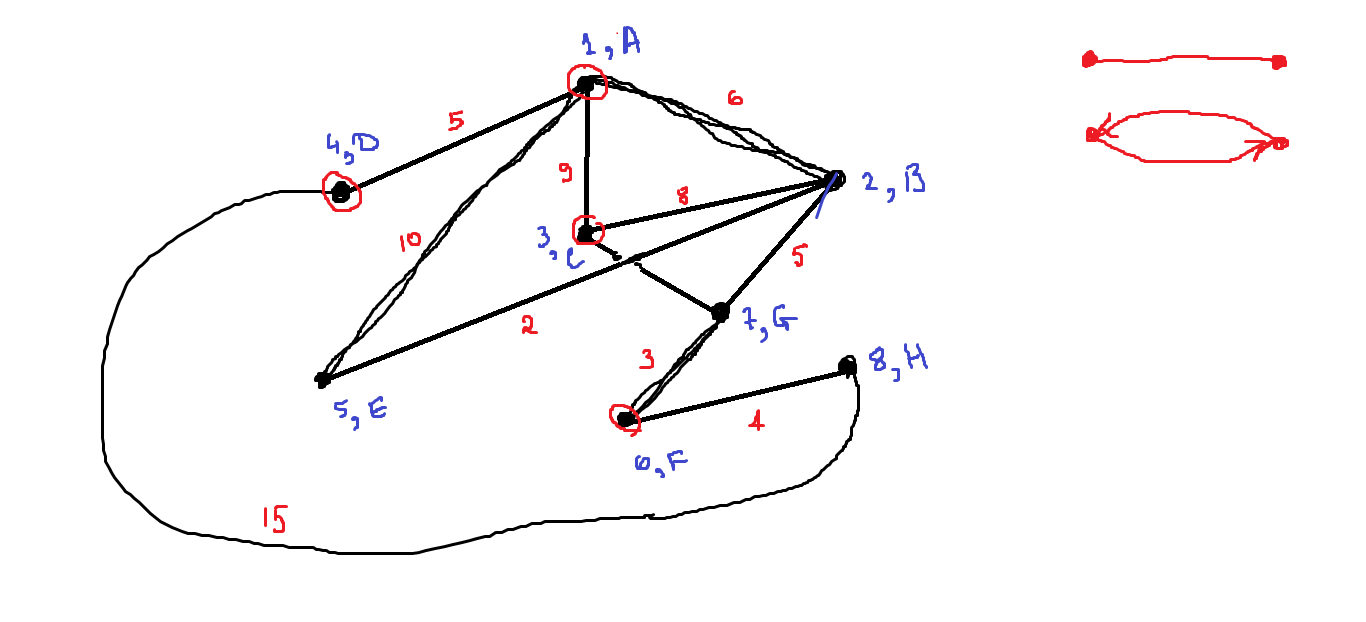 1, A
6
5
4, D
9
8
2, B
10
3, C
5
2
7, G
3
8, H
5, E
4
6, F
15